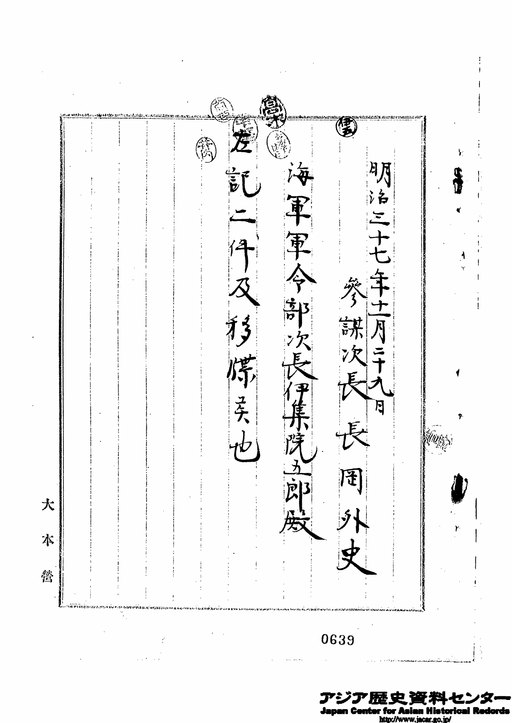 明治三十七年十一月二十九日
參謀次長長岡外史
海軍軍令部次長伊集院五郎殿
左記二件及移牒候也
大本營
0639
アジア歴史資料センター
Japan Center for Asian Historical Records
http://www.jacar.go.jp/